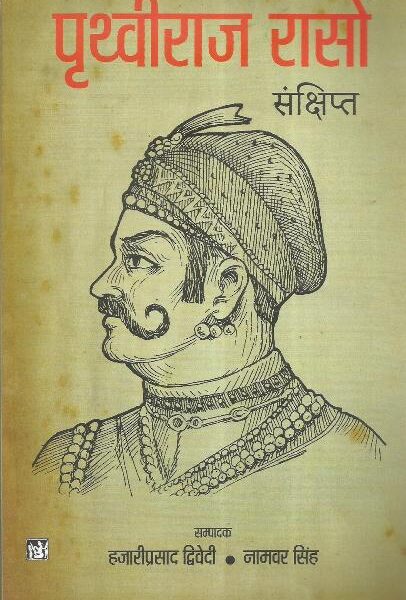 पृथ्वीराज रासो
संक्षिप्त
सम्पादक
हजारीप्रसाद द्विवेदी • नामवर सिंह